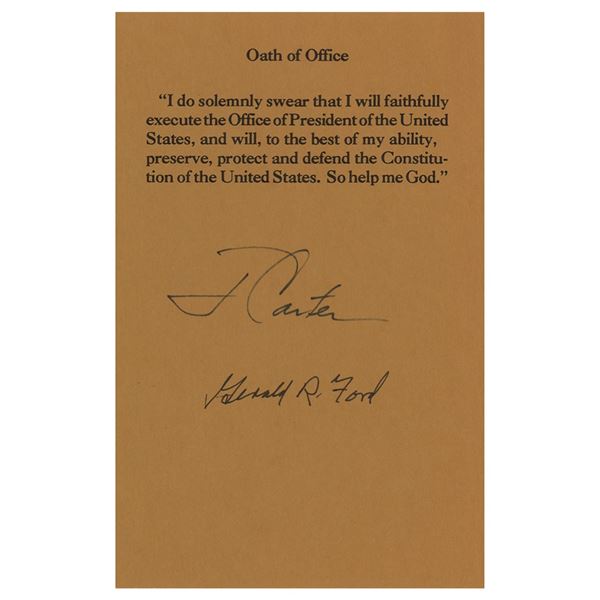 Oath of Office
“I do solemnly swear that I will faithfully
execute the Office of President of the United
States, and will, to the best of my ability,
preserve, protect and defend the Constitu-
tion of the United States. So help me God.”
J Carter
Gerald R. Ford